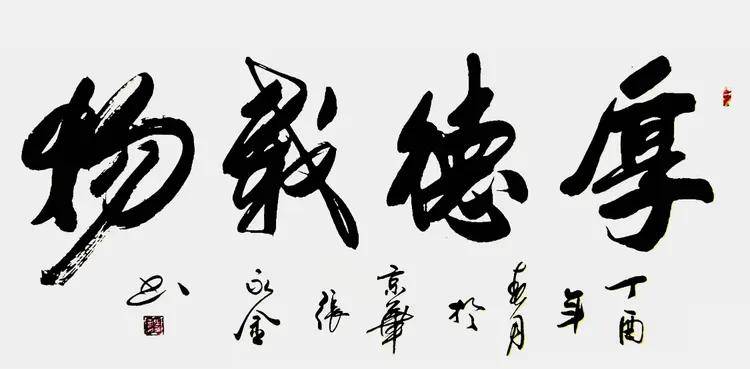 厚德載物
丁酉年春月於京華張永金书